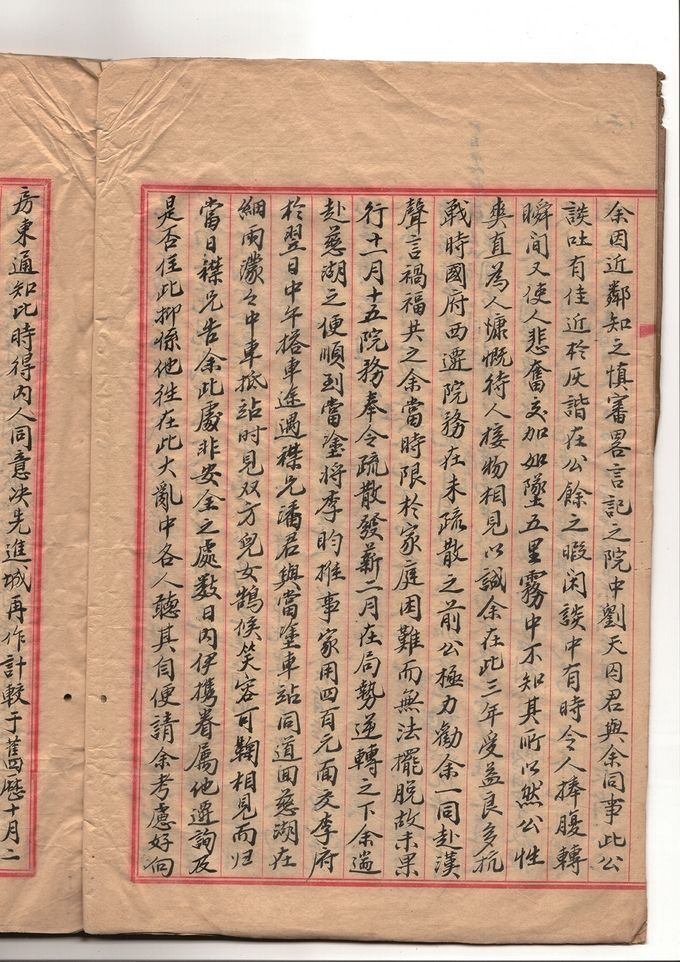 余因近鄰知之慎審畧言記之院中劉天囚君與余同事此公
談吐有佳近於灰諧在公餘之暇闲談中有時令人捧腹轉
瞬间又使人悲奮交加如墜五里霧中不知其所以然公性
爽直為人慷慨待人接物相見以誠余在此三年受益良多抗
戰時國府西遷院務在未疏散之前公極力勸余一同赴漢
聲言禍福共之余當時限於家庭困難而無法擺脫故未果
行十一月十五院務奉令疏散發薪二月在局勢逆轉之下余遄
赴慈湖之便順到當塗將李昀推事家用四百元面交李府
於翌日中午搭車途遇襟兄潘君與當塗車站同道回慈湖在
細雨濛々中車抵站时見双方兒女鵠候笑容可鞠相見而归
當日襟兄告余此處非安全之處数日内伊携眷属他遷詢及
是否住此抑係他往在此大亂中各人聽其自便請余考慮好向
房東通知此時得内人同意决先進城再作計較于舊歷十月二